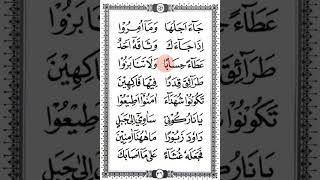 جَآءَ اَجَلُهَا وَمَآ اُمِرُوْا
اِذَا جَآءَكَ وَثَاقَهٗٓ اَحَدٌ
عَطَآءً حِسَابًا وَلَا تَنَابَزُوْا
طَرَآئِقَ قِدَدًا فِيْهَا فَاكِهِيْنَ
تَكُوْنُوْا شُهَدَآءَ اٰمَنُوْٓا اَطِيْعُوا
يَا نَارُ كُوْنِيْ سَاٰوِيْٓ اِلٰى جَبَلٍ
دَاوٗدَ زَبُوْرًا مَا هٰهُنَآ اٰمِنِيْنَ
فَجَعَلَهٗ غُثَآءً عَلٰى مَآ اَصَابَكَ